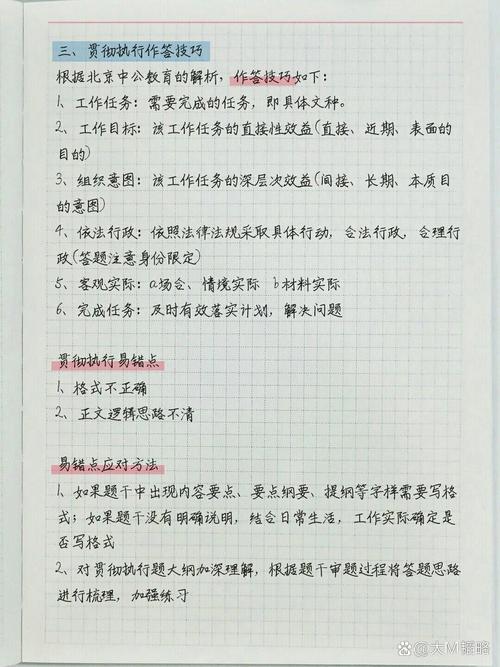 三、贯彻执行作答技巧
根据北京中公教育的解析，作答技巧如下：
1、工作任务：需要完成的任务，即具体文种。
2、工作目标：该工作任务的直接性效益(直接、近期、表面的
目的)
3、组织意图：该工作任务的深层次效益(间接、长期、本质目
的意图)
4、依法行政：依照法律法规采取具体行动，合法行政，合理行
政(答题注意身份限定)
5、客观实际：a场合、情境实际 b材料实际
6、完成任务：及时有效落实计划，解决问题
贯彻执行易错点
1、格式不正确
2、正文逻辑思路不清
易错点应对方法
1、如果题干中出现内容要点、要点纲要、提纲等字样需要写格
式；如果题干没有明确说明，结合日常生活，工作实际确定是
否写格式
2、对贯彻执行题大纲加深理解，根据题干审题过程将答题思路
进行梳理，加强练习
大M韬略